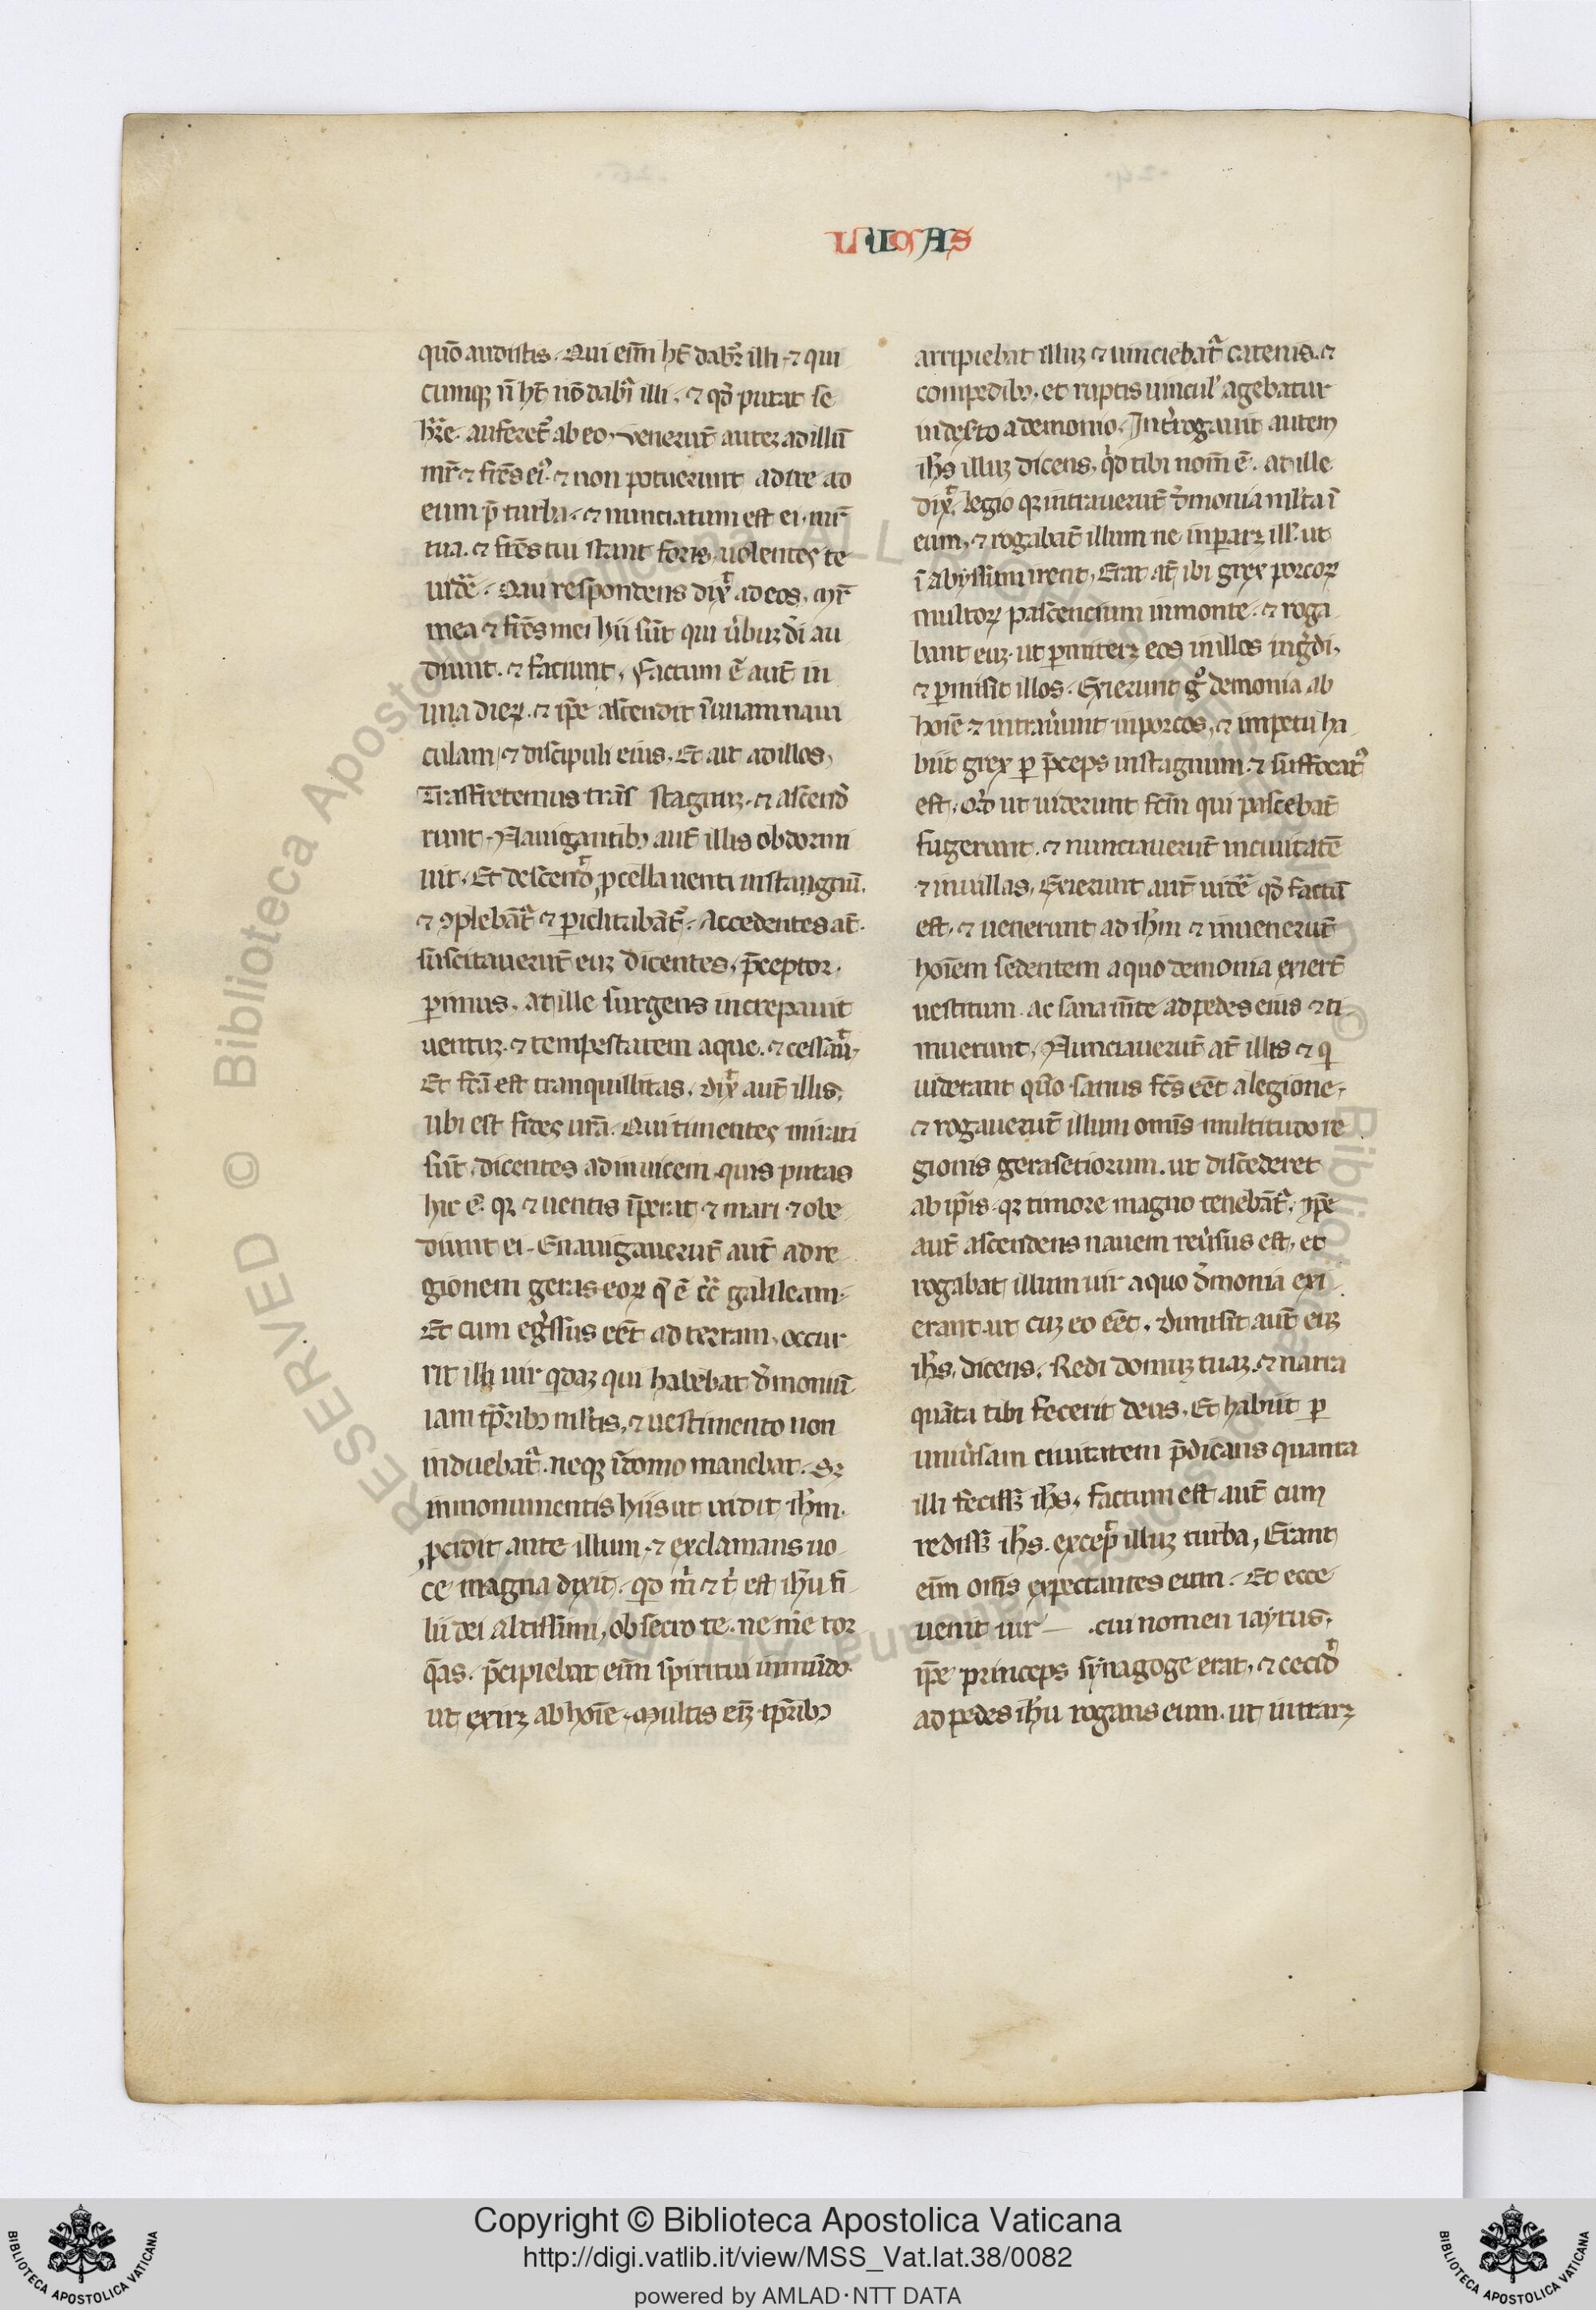 LUCAS
quō audistis. Qui eīm hꝫ̄ dabr̄ illi. ⁊ qui
cumqꝫ ñ hꝫ̄ nō dabr̄ illi. ⁊ qđ putat se
hr̄e. auferet᷑ ab eo. Venerūt autez ad illū
mr̄ ⁊ fr̄es eiꝰ. ⁊ non potuerunt adire ad
eum p̄ turba. ⁊ nunciatum est ei. mr̄
tua. ⁊ fr̄es tui stant foris. uolentes te
uidē̄. Qui respondens dix̄ ad eos. mr̄
mea ⁊ fr̄es mei hii sūt qui u̾buz d̄i au
diunt. ⁊ faciunt. Factum ē aut̄ in
una dieꝝ. ⁊ ip̄e ascendit ī unam naui
culam. ⁊ discipuli eius. Et ait ad illos.
Trasfretemus trās stagnuz. ⁊ ascend̾
runt. Nauigantibꝰ aut̄ illis obdormi
uit. Et descend̄ ꝓcella uenti in stangnū.
⁊ ꝯplebāt᷑ ⁊ ꝑiclitabāt᷑. Accedentes at̄.
suscitauerūt euz dicentes. p̄ceptor.
ꝑimus. at ille surgens increpauit
uentuz. ⁊ tempestatem aque. ⁊ cessau̾.
Et fc̄a est tranquillitas. dix̄ aut̄ illis.
ubi est fides ur̄a. Qui timentes mirati
sūt. dicentes ad inuicem. quis putas
hic ē. qꝛ ⁊ uentis īperat ⁊ mari. ⁊ obe
diunt ei. Enauigauerūt aut̄ ad re
gionem geras eoꝝ q̄ ē c̄c̄ galileam.
Et cum eg̾ssus eēt ad terram. occur
rit illi uir qdaz qui habebat d̾moniū
iam tp̄ribꝰ ml̄tis. ⁊ uestimento non
induebat᷑. neqꝫ ī domo manebat. sꝫ
in monumentis hiis ut uidit ih̄m.
ꝓcidit ante illum. ⁊ exclamans uo
ce magna dixit. qđ m̾ ⁊ t̾ est ih̄u fi
lii dei altissimi. obsecro te. ne me tor
q̄as. p̄cipiebat eīm spiritui inmūdo.
ut exirꝫ ab hoīe. Multis eīꝫ tp̄ribꝰ
arripiebat illuz ⁊ uinciebat᷑ catenis. ⁊
compedibꝰ. et ruptis uincul̾ agebatur
in desꝫto a demonio. Int̾rogauit autem
ih̄s illuz dicens. qđ tibi nom̄ ē. at ille
dix̄. legio qꝛ intrauerūt d̾monia ml̄ta ī
eum. ⁊ rogabāt illum ne inꝑarꝫ ill̾. ut
ī abyssum irent. Erat at̄ ibi grex porcoꝝ
multoꝝ pascencium in monte. ⁊ roga
bant euz. ut ꝑmiterꝫ eos in illos ing̾di.
⁊ ꝑmisit illos. Exierunt g̊ demonia ab
hoīe ⁊ intrau̾unt in porcos. ⁊ impetu ha
biit grex ꝑ p̄ceps in stagnum. ⁊ suffocat᷑
est. Qđ ut uiderunt fcm̄ qui pascebāt
fugerunt. ⁊ nunciauerūt in ciuitatē
⁊ in uillas. Exierunt aut̄ uidē̄ qđ factū
est. ⁊ uenerunt ad ih̄m ⁊ inuenerūt
hoīem sedentem a quo demonia exiert̄
uestitum. ac sana mn̄te ad pedes eius ⁊ ti
muerunt. Nunciauerūt at̄ illis ⁊ qͥ
uiderant quō sanus fc̄s eēt a legione.
⁊ rogauerūt illum omīs multitudo re
gionis gerasenorum. ut discederet
ab ip̄is. qꝛ timore magno tenebāt᷑. ip̄e
aut̄ ascendens nauem reu̾sus est. et
rogabat illum uir a quo d̾monia exi
erant. ut cuz eo eēt. dimisit aut̄ euz
ih̄s. dicens. Redi domuz tuaz. ⁊ narra
quāta tibi fecerit deus. Et habiit ꝑ
uniu̾sam ciuitatem p̄dicans quanta
illi fecissꝫ ih̄s. factum est aut̄ cum
redissꝫ ih̄s. excep̄ illuz turba. Erant
eīm om̄s expectantes eum. Et ecce
uenit uir — . cui nomen iayrus.
ip̄e princeps synagoge erat. ⁊ cecid̾
ad pedes ih̄u rogans eum. ut intrarꝫ
© Biblioteca Apostolica Vaticana ALL RIGHTS RESERVED
Copyright © Biblioteca Apostolica Vaticana
http://digi.vatlib.it/view/MSS_Vat.lat.38/0082
powered by AMLAD·NTT DATA
BIBLIOTECA APOSTOLICA VATICANA
BIBLIOTECA APOSTOLICA VATICANA